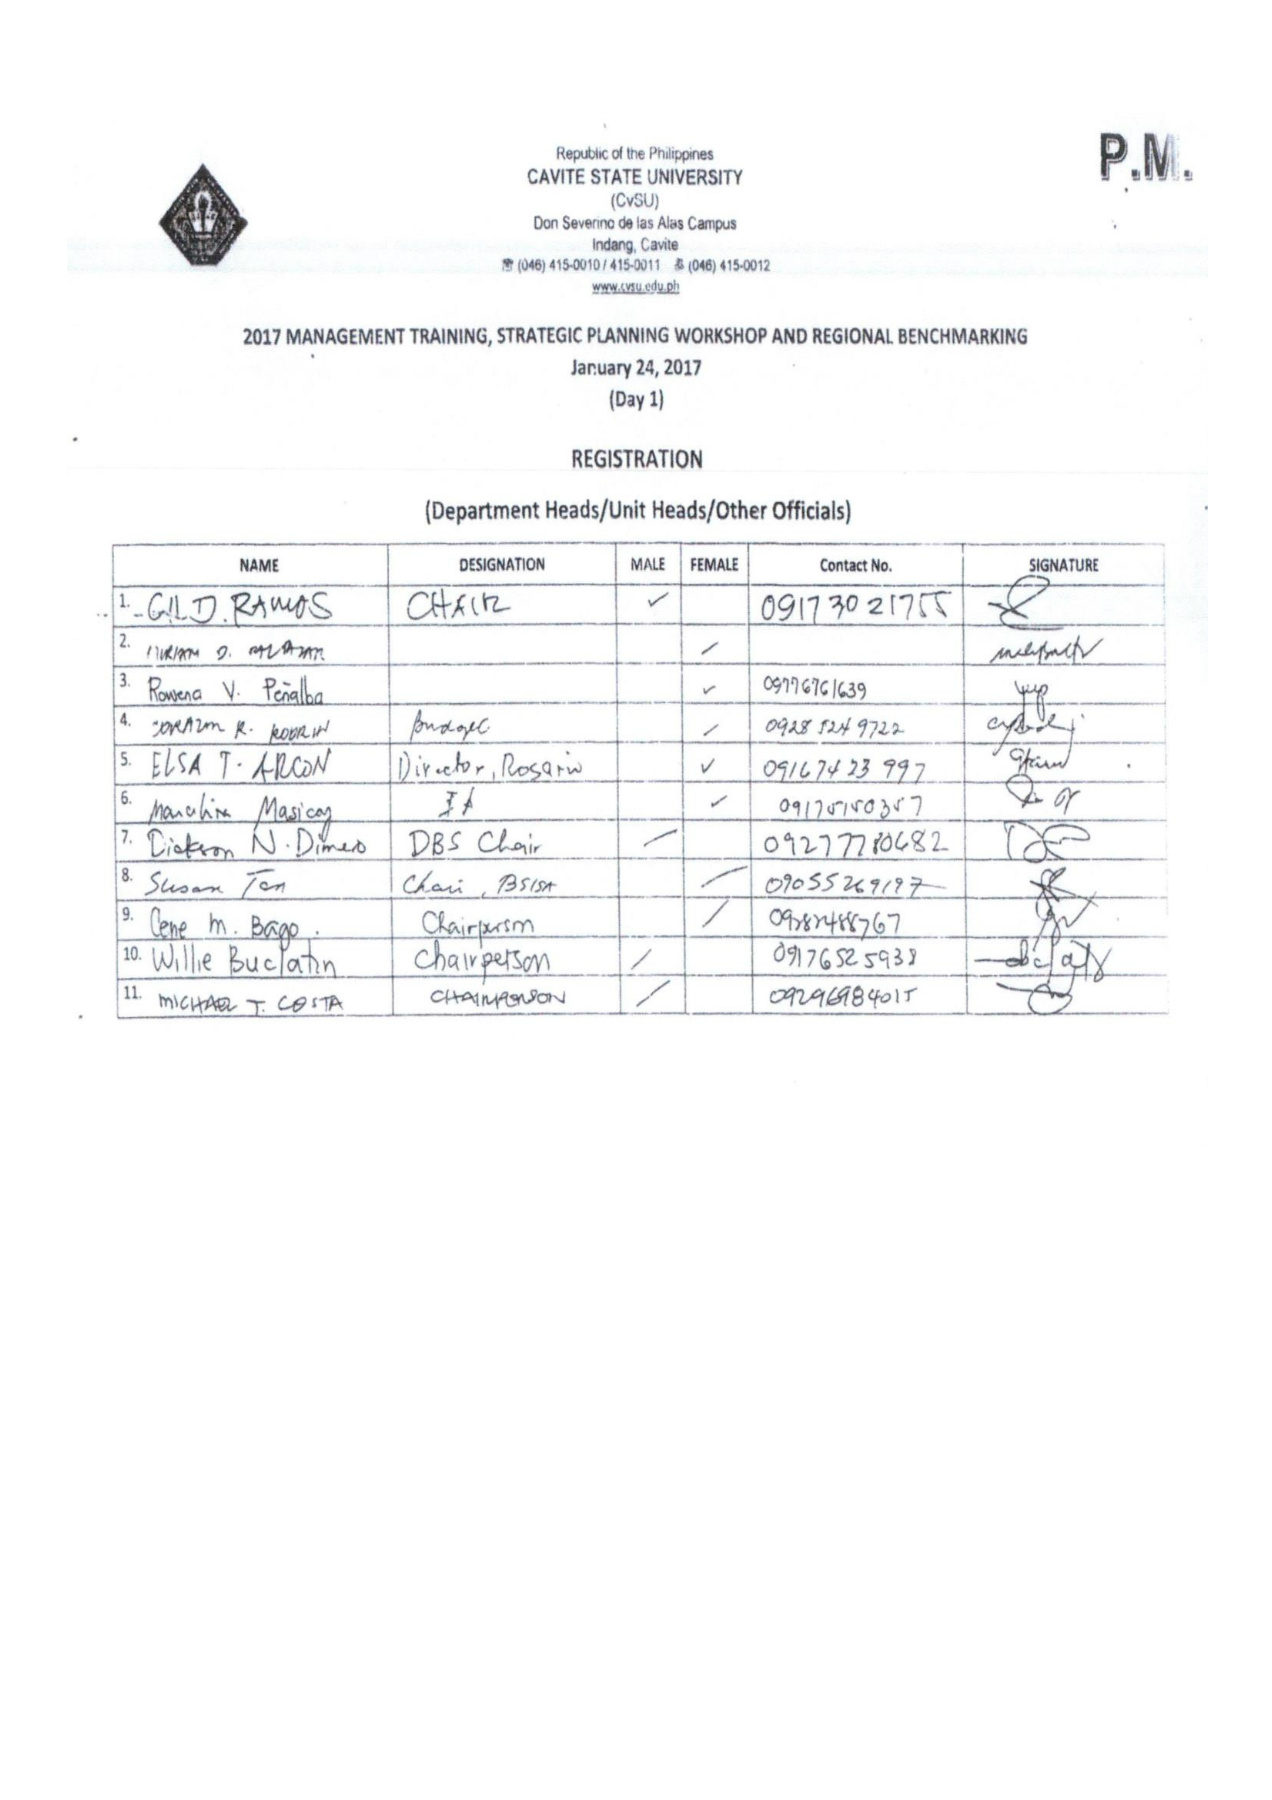 P.M.
Republic of the Philippines
CAVITE STATE UNIVERSITY
(CvSU)
Don Severino de las Alas Campus
Indang, Cavite
(046) 415-0010 / 415-0011 (046) 415-0012
www.cvsu.edu.ph
2017 MANAGEMENT TRAINING, STRATEGIC PLANNING WORKSHOP AND REGIONAL BENCHMARKING
January 24, 2017
(Day 1)
REGISTRATION
(Department Heads/Unit Heads/Other Officials)
NAME DESIGNATION MALE FEMALE Contact No. SIGNATURE
1. GIL D. RAMOS CHAIR ✓ 0917 30 21755
2. D.
3. Rowena V. Peñalba ✓ 09776761639
4. R. Budget 0928 524 9722
5. ELSA T. ARCON Director, Rosario ✓ 0916 74 23 997
6. Masicay IA ✓ 09175150357
7. Dickson N. Dimero DBS Chair 09277780682
8. Susan Tan Chair, 09055269197
9. Cene M. Bago Chairperson
10. Willie Buclatin Chairperson 09176525938
11. MICHAEL T. COSTA CHAIRPERSON 09296984015